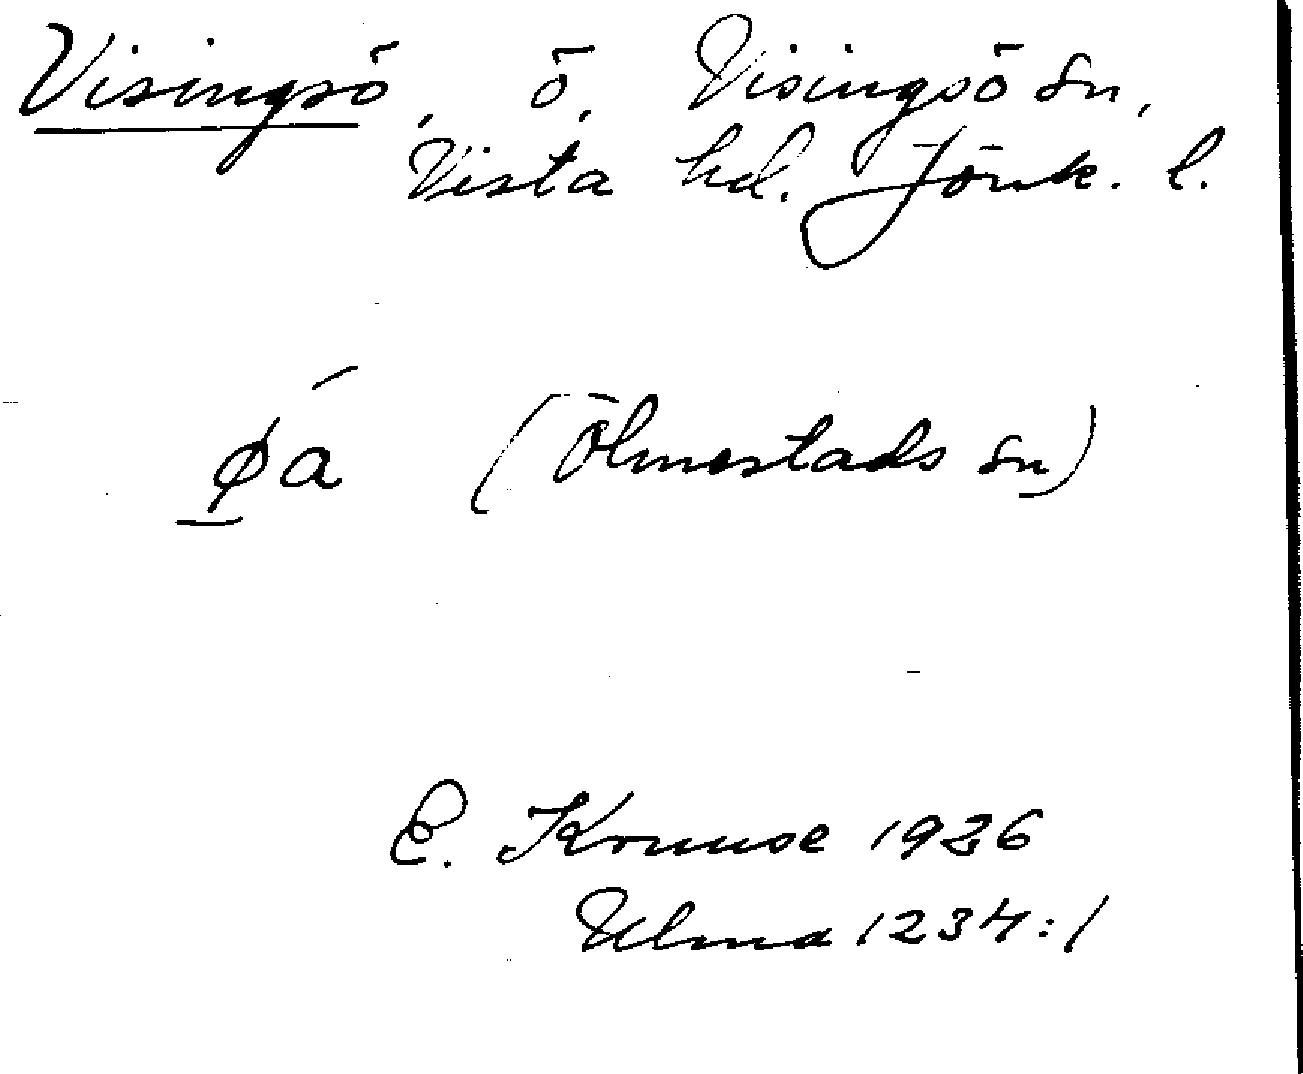 Visingsö, ö, Visingsö sn,
Vista hd. Jönk. l.
(Ölmestads sn)
E. Kruuse 1926
Ulma 1234:1